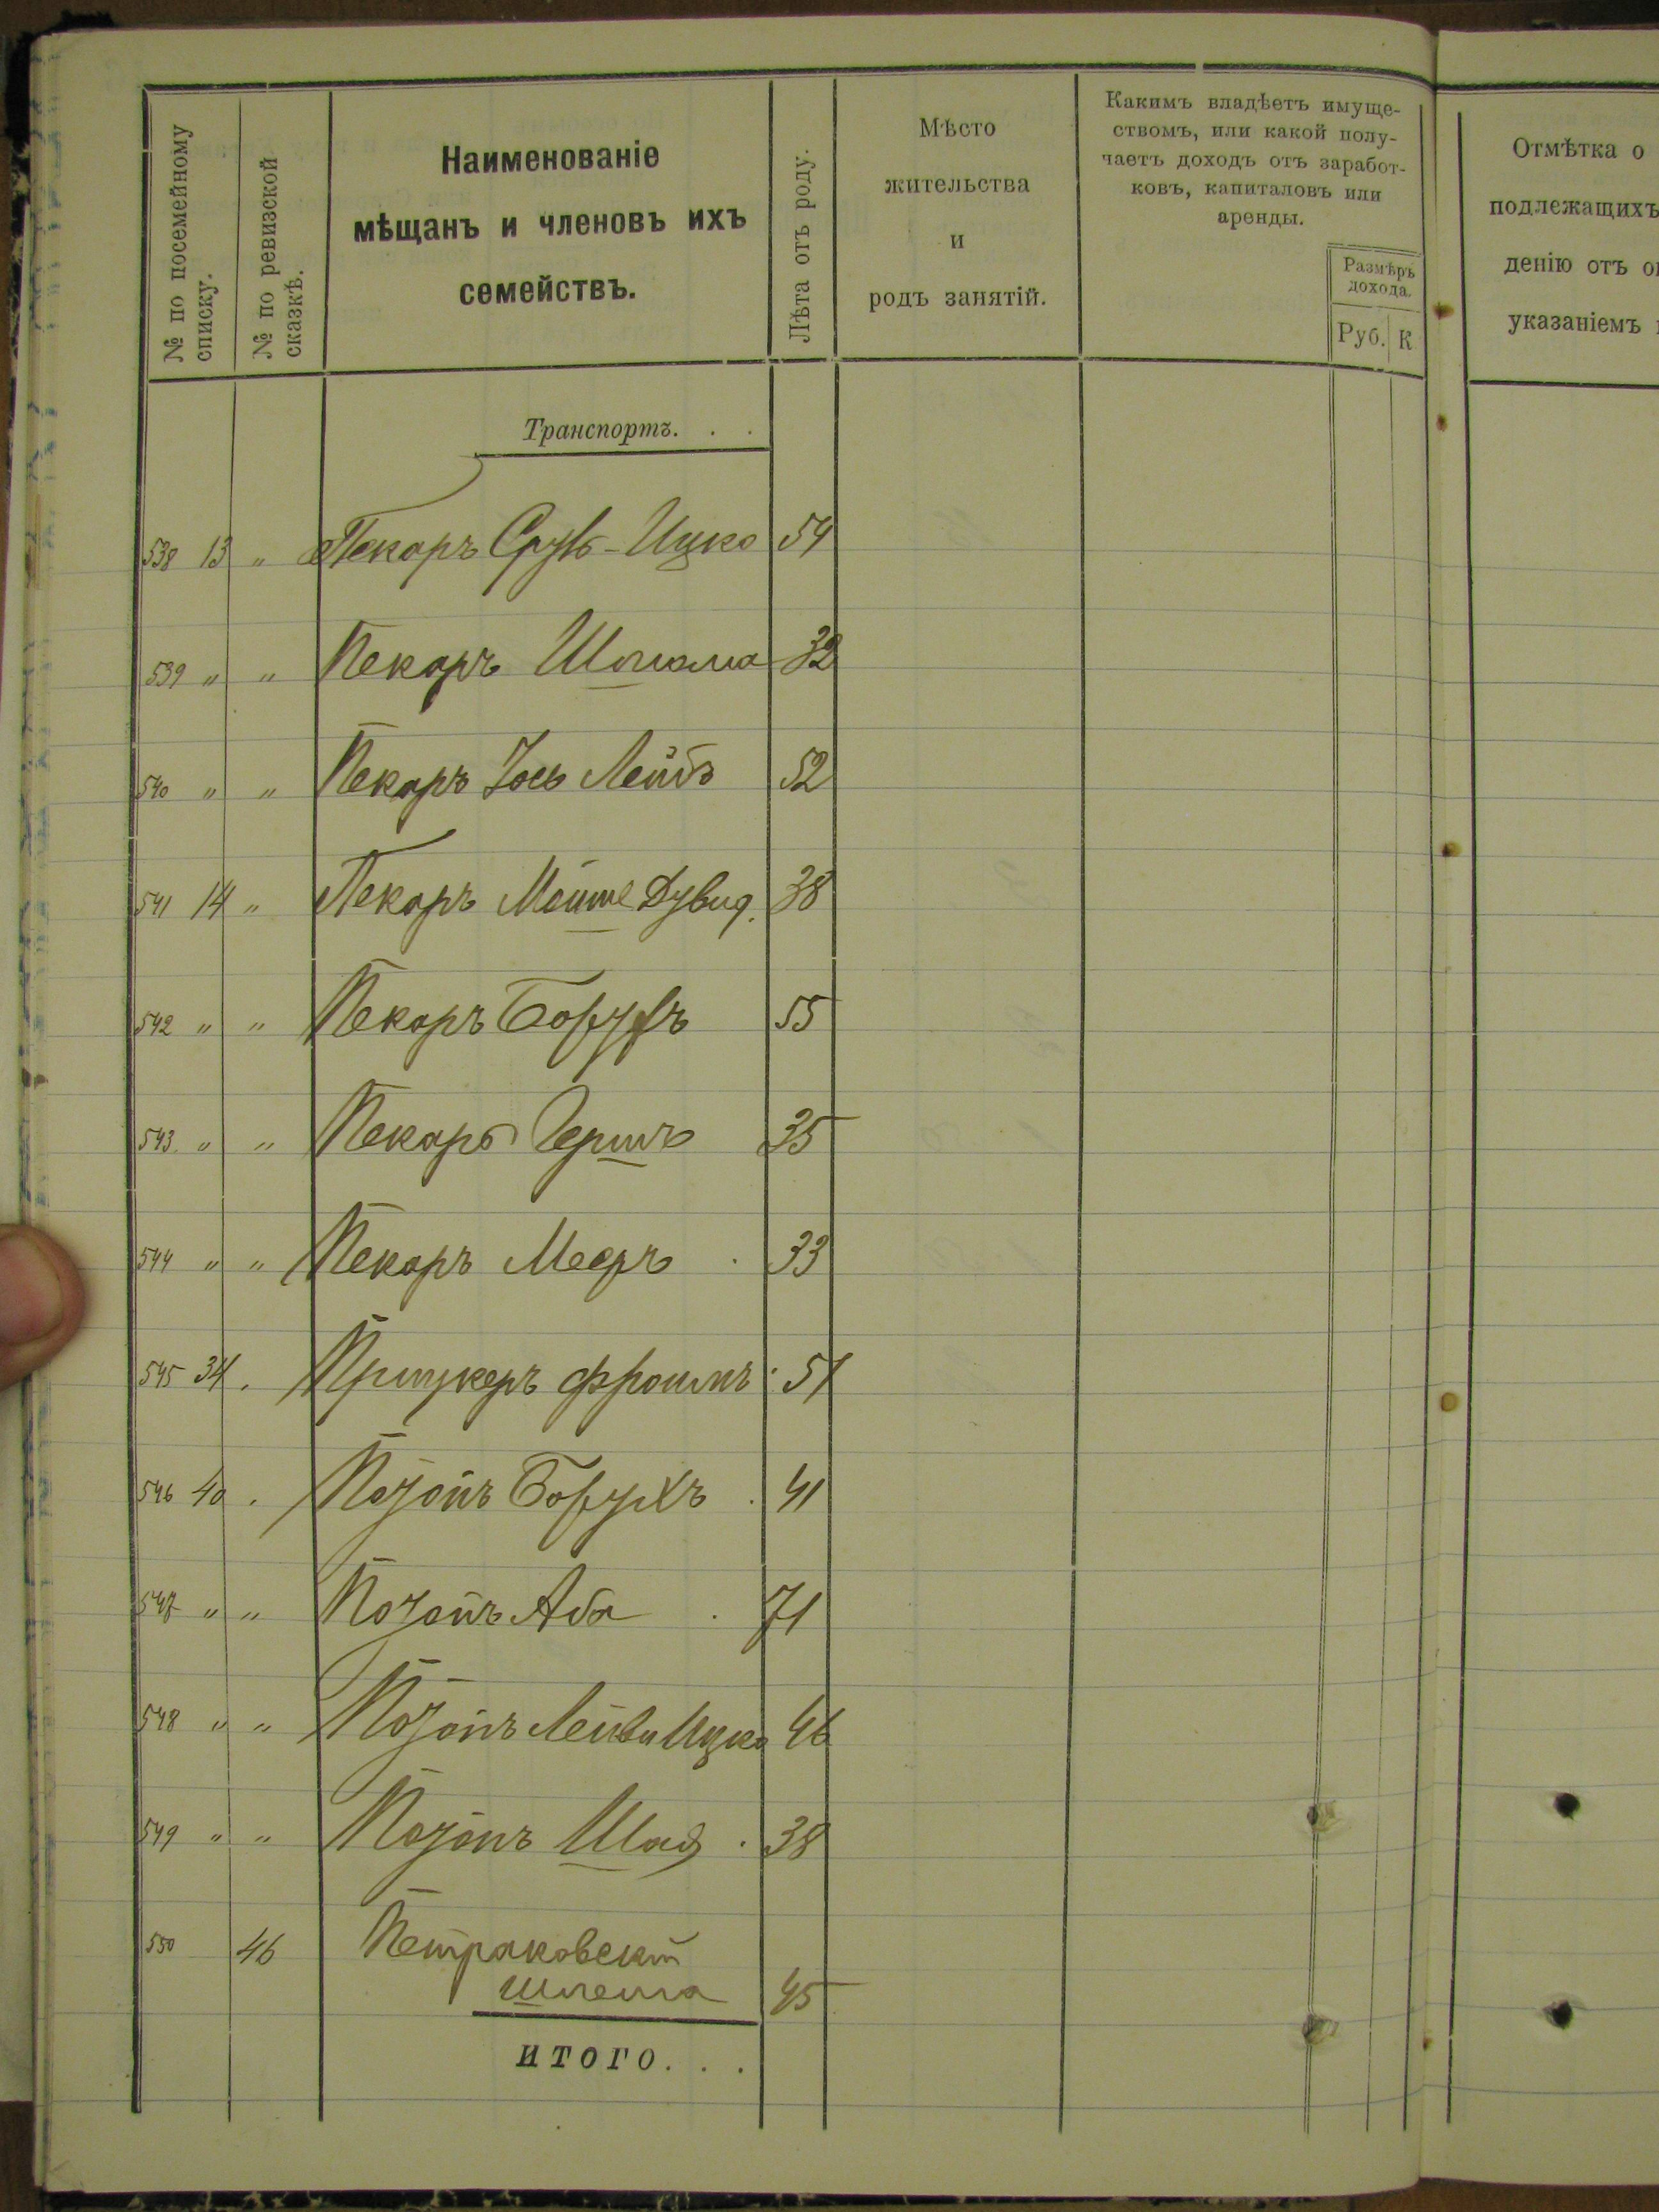 № по посемейному
списку.
№ по ревизской
сказкѣ.
Наименованіе
мѣщанъ и членовъ ихъ
семействъ.
Лѣта отъ роду.
Мѣсто
жительства
и
родъ занятій.
Какимъ владѣетъ имуще-
ствомъ, или какой полу-
чаетъ доходъ отъ заработ-
ковъ, капиталовъ или
аренды.
Размѣръ
дохода.
Руб. К
Отмѣтка о
подлежащихъ
денію отъ
указаніемъ
Транспортъ. . .
538 13 " Пекарь Сруль-Ицко 54
539 " " Пекаръ 32
540 " " Пекаръ Іось Лейбъ 52
541 14 " Пекаръ Мойше Дувид. 38
542 " " Пекаръ Борухъ 55
543. " " Пекаръ Гершъ 35
544 " " Пекаръ Мееръ . 33
545 34 . Прицкеръ Фроимъ . 51
546 40 . Позонъ Борухъ . 41
547 " " Позонъ Аба . 71
548 " " Позонъ Лейви Ицко 46
549 " " Позонъ . 38
550 46 Петраковскій
Шлема 45
ИТОГО. . .